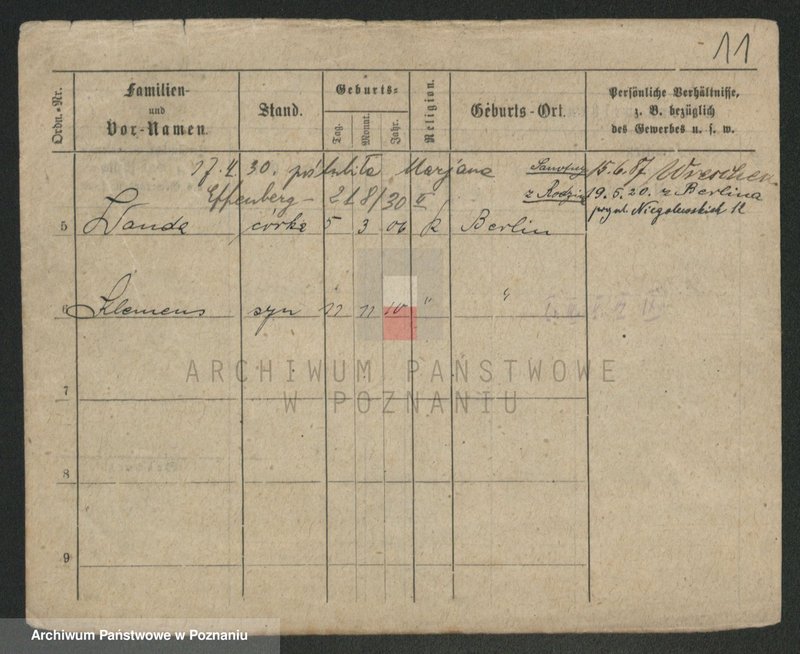 11
Ordn.-Nr.
Familien-
und
Vor-Namen.
Stand.
Geburts-
Tag.
Monat.
Jahr.
Religion.
Geburts-Ort.
Persönliche Verhältnisse,
z. B. bezüglich
des Gewerbes u. s. w.
17.4.30. poślubiła Marjana 15.6.87 Wreschen
Effenberg - 218/30 II z Rodziną 19.5.20. z Berlina
Niegolewskich 12
5 Wanda córka 5 3 06 k Berlin
6 Klemens syn 11 11 10 " "
7
ARCHIWUM PAŃSTWOWE
W POZNANIU
8
9
Archiwum Państwowe w Poznaniu